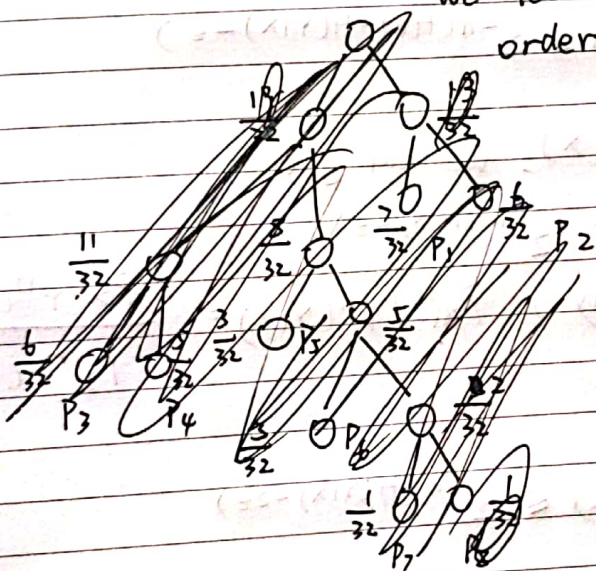 we
order
13/32
13/32
11/32
8/32
7/32
P1
6/32
P2
6/32
5/32
3/32
P5
5/32
P3
P4
3/32
P6
2/32
1/32
1/32
P7
P8